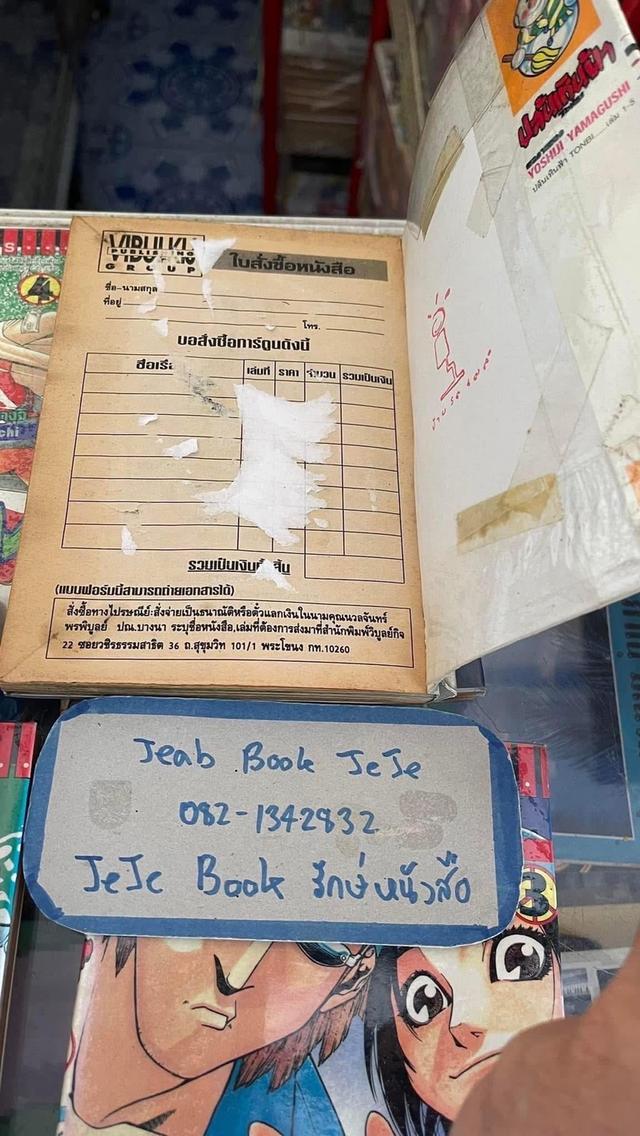 VIBULKIJ
PUBLISHING
GROUP
ใบสั่งซื้อหนังสือ
ชื่อ-นามสกุล
ที่อยู่
โทร.
ขอสั่งซื้อการ์ตูนดังนี้
ชื่อเรื่อ
เล่มที่
ราคา
จำนวน
รวมเป็นเงิน
รวมเป็นเงินทั้งสิ้น
(แบบฟอร์มนี้สามารถถ่ายเอกสารได้)
สั่งซื้อทางไปรษณีย์:สั่งจ่ายเป็นธนาณัติหรือตั๋วแลกเงินในนามคุณนวลจันทร์
พรพิบูลย์ ปณ.บางนา ระบุชื่อหนังสือ,เล่มที่ต้องการส่งมาที่สำนักพิมพ์วิบูลย์กิจ
22 ซอยวชิรธรรมสาธิต 36 ถ.สุขุมวิท 101/1 พระโขนง กท.10260
YOSHIJI YAMAGUSHI
ปล้นเทินฟ้า TONBI เล่ม 1-5
4
chi
Jeab Book JeJe
082-1342832
JeJe Book รักษ์หนังสือ
3